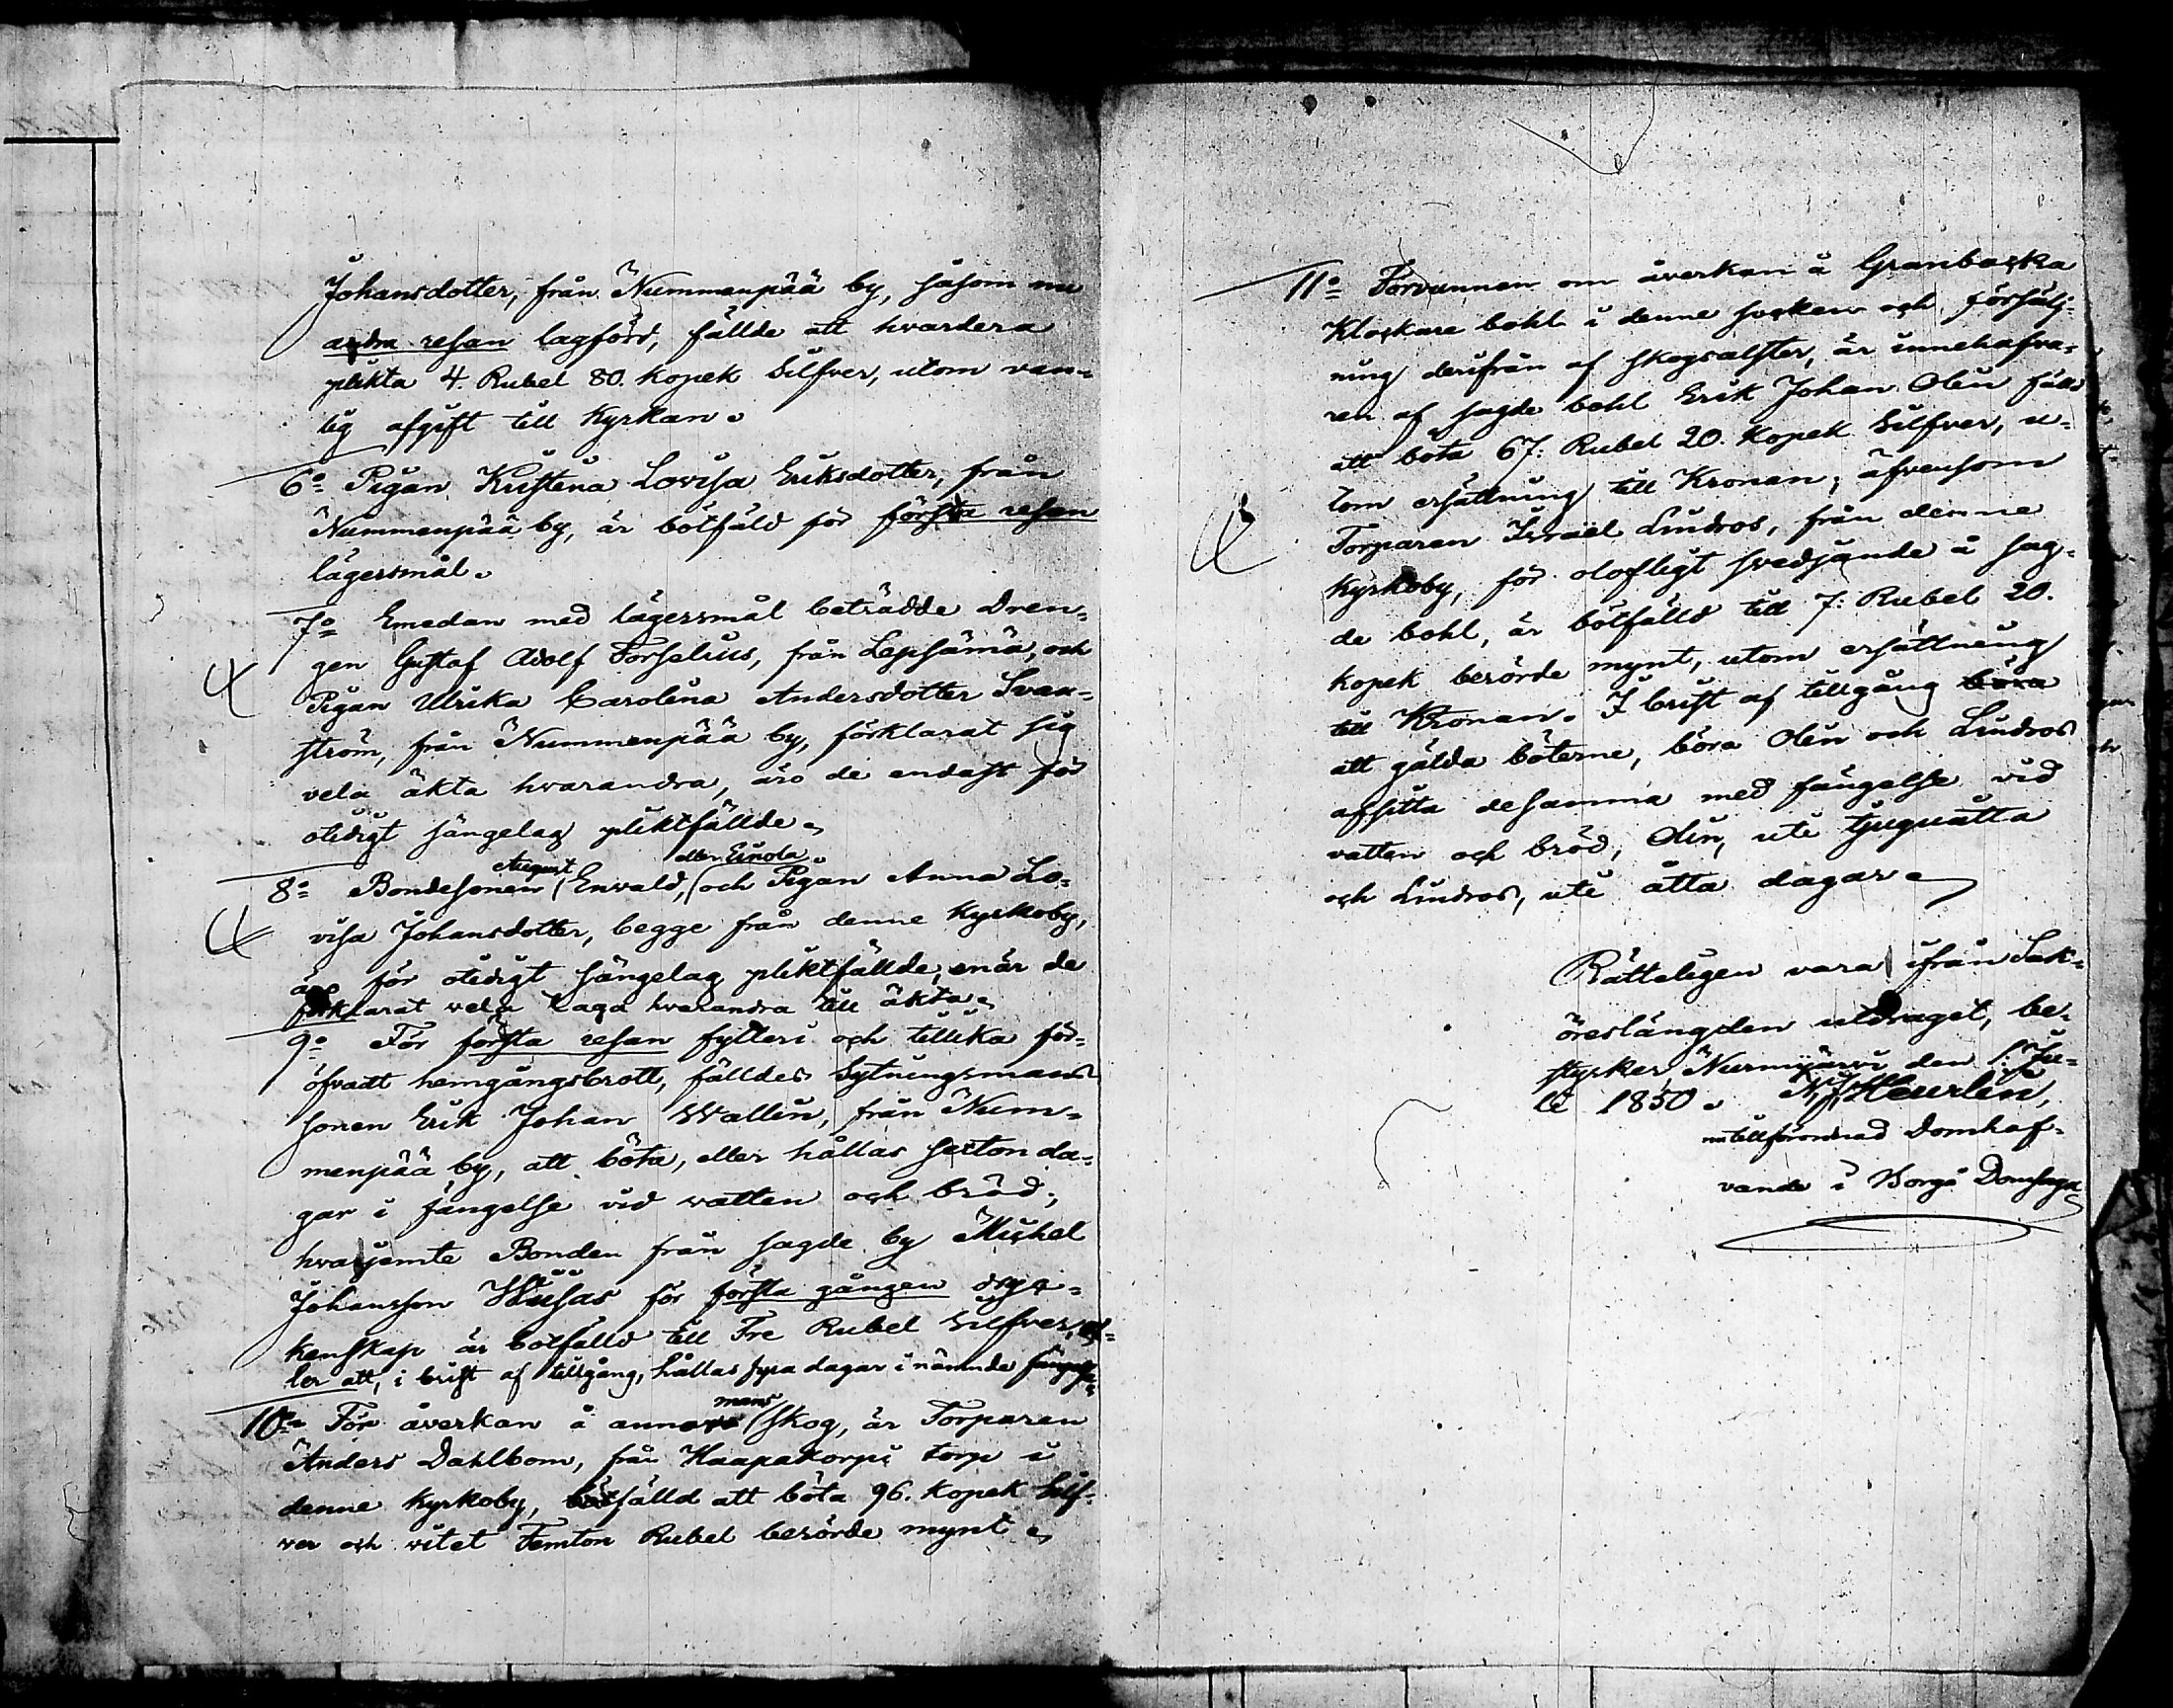 Johansdotter, från Nummenpää by, såsom nu
andra resan lagförd, fällde att hvardera
plikta 4. Rubel 80. Kopek Silfver, utom van-
lig afgift till Kyrkan.
6:o Pigan Kristina Lovisa Eriksdotter, från
Nummenpää by, är bötfäld för första resan
lägersmål.
7:o Emedan med lägersmål beträdde Dren-
gen Gustaf Adolf Forselius, från Lepsämä, och
Pigan Ulrika Carolina Andersdotter Svan-
ström, från Nummenpää by, förklarat sig
vela äkta hvarandra, äro de endast för
otidigt sängelag pliktfällde.
August eller Einola
8:o Bondesonen Enwald, och Pigan Anna Lo-
visa Johansdotter, begge från denne Kyrkoby,
äro för otidigt sängelag pliktfällde, enär de
förklarat vela taga hvarandra till äkta.
9:o För första resan fylleri och tillika för-
öfvadt hemgångsbrott, fälldes Sytningsmans
sonen Erik Johan Wallin, från Num-
menpää by, att böta, eller hållas sexton da-
gar i fängelse vid vatten och bröd;
hvarjemte Bonden från sagde by Michel
Johansson Husas för första gången dryc-
kenskap är bötfälld till Tre Rubel Silfver, el-
ler att, i brist af tillgång, hållas fyra dagar i nämnde fängelse.
mans
10:o För åverkan å annans skog, är Torparen
Anders Dahlbom, från Haapakorpi torp i
denne Kyrkoby, fälld att böta 96. Kopek Silf-
ver och vitet Femton Rubel berörde mynt.
11:o Förvunnen om åverkan å Granbacka
Klockare bohl i denne socken och försälj-
ning derifrån af skogsalster, är innehafva-
ren af sagde bohl Erik Johan Olin fälld
att böta 67: Rubel 20. Kopek Silfver, u-
tom ersättning till Kronan; äfvensom
Torparen Israël Lindros, från denne
Kyrkoby, för olofligt svedjande å sag-
de bohl, är bötfälld till 7: Rubel 20.
Kopek berörde mynt, utom ersättning
till Kronan. I brist af tillgång böra
att gälda böterne, böra Olin och Lindros
afsitta desamma med fängelse vid
vatten och bröd, Olin, uti tjuguåtta
och Lindros, uti åtta dagar.
Rätteligen vara ifrån Sak-
öreslängden utdraget, be-
styrker Nurmijärvi den 1: Ju-
li 1850. Heurlin,
tillförordnad Domhaf-
vande i Borgå Domsaga